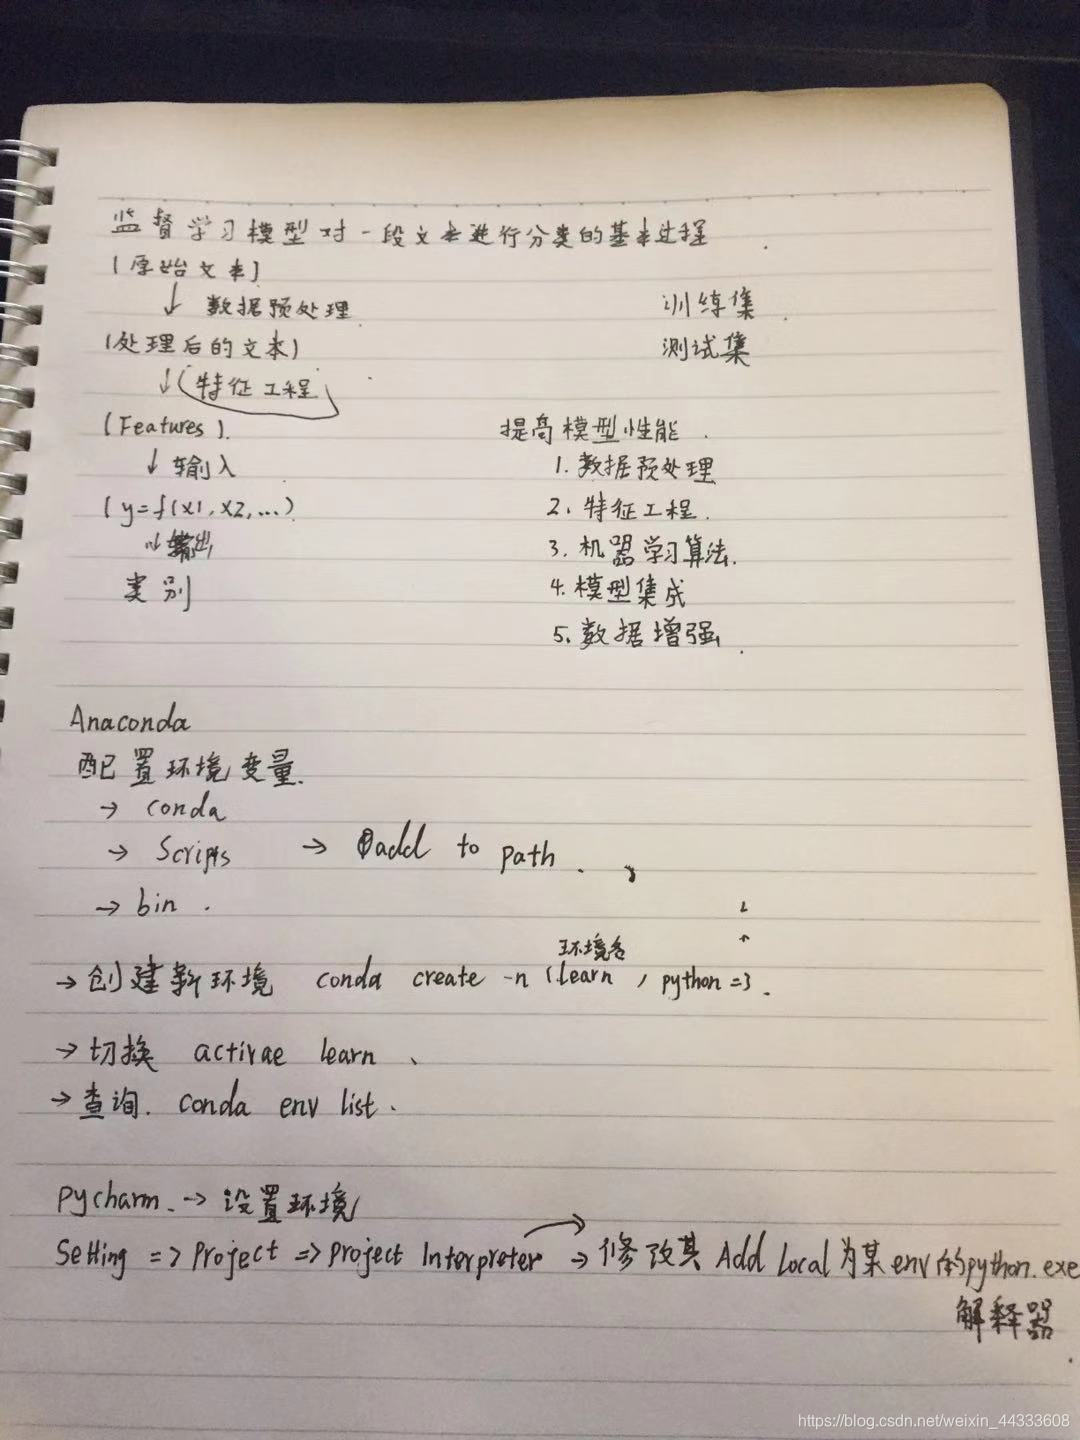 监督学习模型对一段文本进行分类的基本过程
(原始文本)
↓ 数据预处理
训练集
(处理后的文本)
测试集
↓ (特征工程)
(Features).
提高模型性能.
↓ 输入
1. 数据预处理
(y=f(x1,x2,...)
2. 特征工程.
↓ 输出
3. 机器学习算法.
类别
4. 模型集成
5. 数据增强.
Anaconda
配置环境变量.
→ conda
→ Scripts → add to path.
→ bin.
环境名
→ 创建新环境 conda create -n (learn, python=3.
→ 切换 activae learn、
→ 查询. conda env list.
Pycharm. → 设置环境
Setting => Project => Project Interpreter → 修改其 Add Local 为某 env 的 python.exe
解释器.
https://blog.csdn.net/weixin_44333608